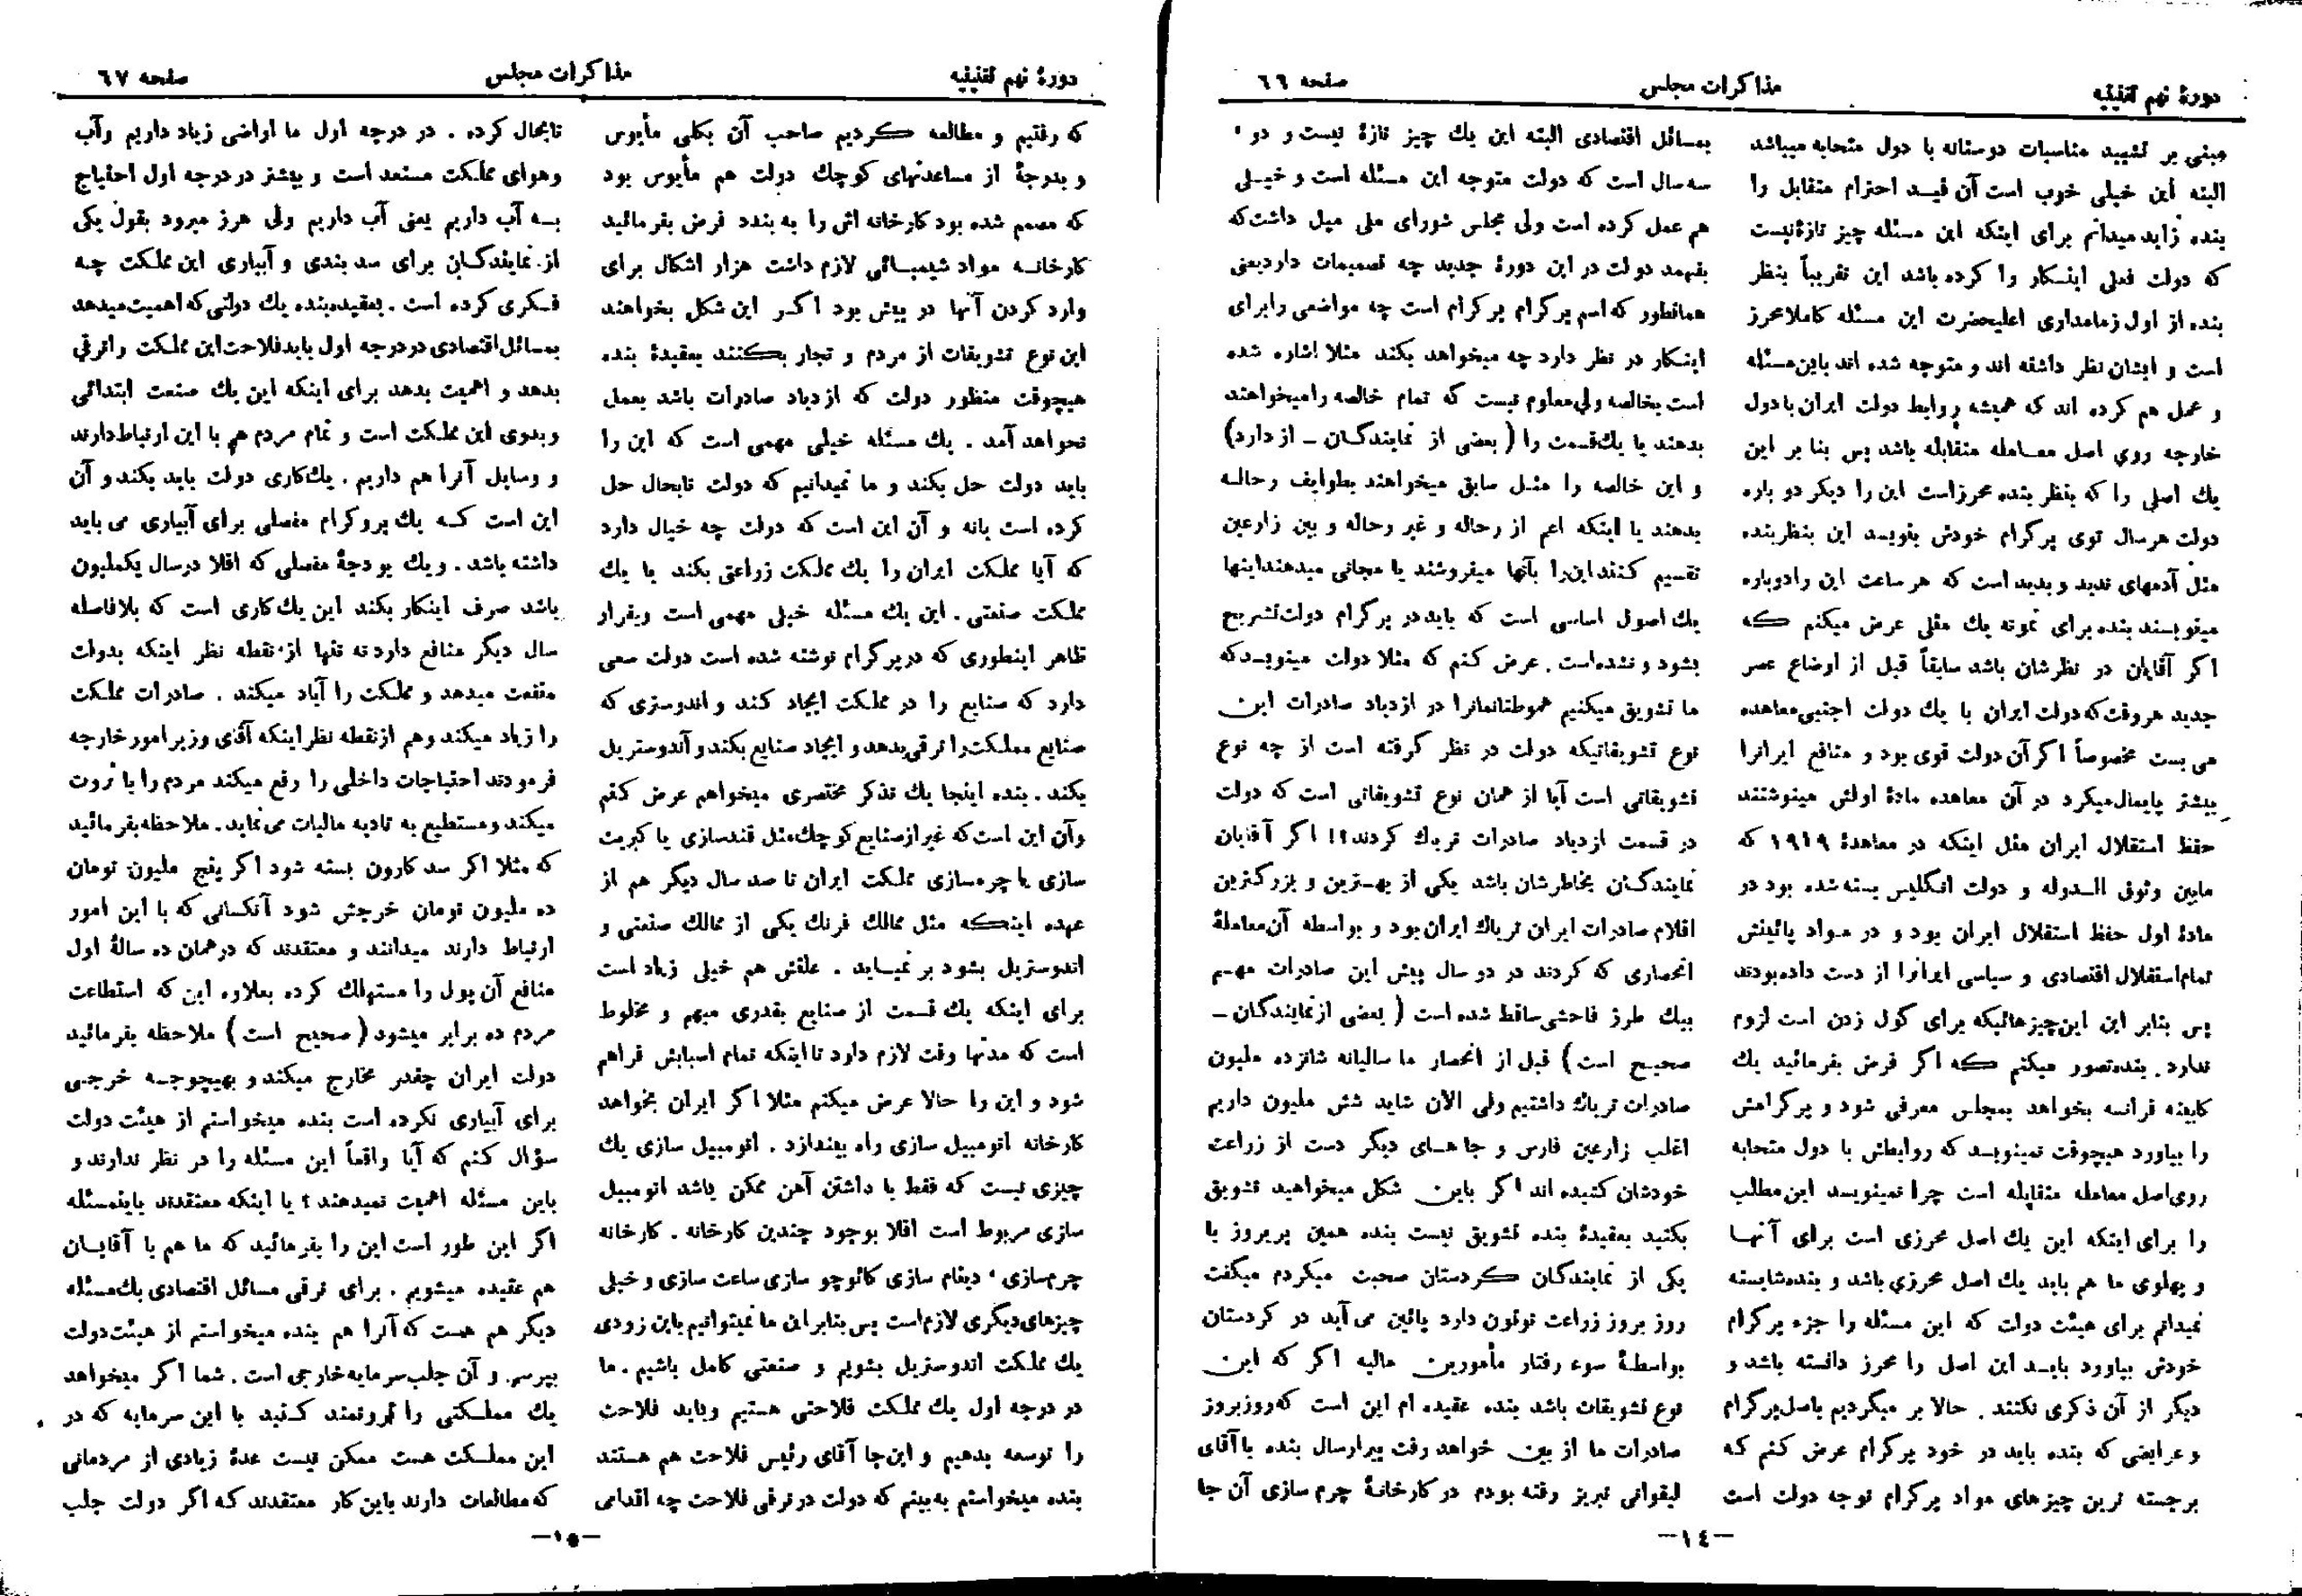 دورهٔ نهم تقنینیه
مذاکرات مجلس
صفحه ٦٦
مبنی بر تشیید مناسبات دوستانه با دول متحابه میباشد
البته این خیلی خوب است آن قید احترام متقابل را
بنده زاید میدانم برای اینکه این مسئله چیز تازهٔ نیست
که دولت فعلی اینکار را کرده باشد این تقریباً بنظر
بنده از اول زمامداری اعلیحضرت این مسئله کاملا محرز
است و ایشان نظر داشته اند و متوجه شده اند باین مسئله
و عمل هم کرده اند که همیشه روابط دولت ایران با دول
خارجه روی اصل معامله متقابله باشد پس بنا بر این
یك اصلی را که بنظر بنده محرز است این را دیگر دو باره
دولت هر سال توی پرگرام خودش بنویسد این بنظر بنده
مثل آدمهای ندید و بدید است که هر ساعت این را دوباره
مینویسند بنده برای نمونه یك مثلی عرض میکنم که
اگر آقایان در نظرشان باشد سابقاً قبل از اوضاع عصر
جدید هر وقت که دولت ایران با یك دولت اجنبی معاهده
می بست مخصوصاً اگر آن دولت قوی بود و منافع ایرانرا
بیشتر پایمال میکرد در آن معاهده مادهٔ اولش مینوشتند
حفظ استقلال ایران مثل اینکه در معاهدهٔ ۱۹۱۹ که
مابین وثوق الدوله و دولت انگلیس بسته شده بود در
مادهٔ اول حفظ استقلال ایران بود و در مواد پائینش
تمام استقلال اقتصادی و سیاسی ایرانرا از دست داده بودند
پس بنابر این این چیزهائیکه برای گول زدن است لزوم
ندارد. بنده تصور میکنم که اگر فرض بفرمائید یك
کابینه فرانسه بخواهد بمجلس معرفی شود و پرگرامش
را بیاورد هیچوقت نمینویسد که روابطش با دول متحابه
روی اصل معامله متقابله است چرا نمینویسد این مطلب
را برای اینکه این یك اصل محرزی است برای آنها
و پهلوی ما هم باید یك اصل محرزی باشد و بنده شایسته
نمیدانم برای هیئت دولت که این مسئله را جزء پرگرام
خودش بیاورد باید این اصل را محرز دانسته باشد و
دیگر از آن ذکری نکنند. حالا بر میگردیم باصل پرگرام
و عرایضی که بنده باید در خود پرگرام عرض کنم که
برجسته ترین چیزهای مواد پرگرام توجه دولت است
بمسائل اقتصادی البته این یك چیز تازهٔ نیست و دو،
سه سال است که دولت متوجه این مسئله است و خیلی
هم عمل کرده است ولی مجلس شورای ملی میل داشت که
بفهمد دولت در این دورهٔ جدید چه تصمیمات دارد یعنی
همانطور که اسم پرگرام پرگرام است چه مواضعی را برای
اینکار در نظر دارد چه میخواهد بکند مثلا اشاره شده
است بخالصه ولی معلوم نیست که تمام خالصه را میخواهند
بدهند یا یك قسمت را (بعضی از نمایندگان - از دارد)
و این خالصه را مثل سابق میخواهند بطوایف رحاله
بدهند یا اینکه اعم از رحاله و غیر رحاله و بین زارعین
تقسیم کنند این را بآنها میفروشند یا مجانی میدهند اینها
یك اصول اساسی است که باید در پرگرام دولت تشریح
بشود و نشده است. عرض کنم که مثلا دولت مینویسد که
ما تشویق میکنیم هموطنانمانرا در ازدیاد صادرات این
نوع تشویقاتیکه دولت در نظر گرفته است از چه نوع
تشویقاتی است آیا از همان نوع تشویقاتی است که دولت
در قسمت ازدیاد صادرات تریاك کردند؟! اگر آقایان
نمایندگان بخاطرشان باشد یکی از بهترین و بزرگترین
اقلام صادرات ایران تریاك ایران بود و بواسطه آن معاملهٔ
انحصاری که کردند در دو سال پیش این صادرات مهم
بیك طرز فاحشی ساقط شده است (بعضی از نمایندگان -
صحیح است) قبل از انحصار ما سالیانه شانزده ملیون
صادرات تریاك داشتیم ولی الان شاید شش ملیون داریم
اغلب زارعین فارس و جاهای دیگر دست از زراعت
خودشان کشیده اند اگر باین شکل میخواهید تشویق
بکنید بعقیدهٔ بنده تشویق نیست بنده همین پریروز با
یکی از نمایندگان کردستان صحبت میکردم میگفت
روز بروز زراعت توتون دارد پائین می آید در کردستان
بواسطهٔ سوء رفتار مأمورین مالیه اگر که این
نوع تشویقات باشد بنده عقیده ام این است که روز بروز
صادرات ما از بین خواهد رفت پیرارسال بنده با آقای
لیقوانی تبریز رفته بودم در کارخانهٔ چرم سازی آن جا
—١٤—
دورهٔ نهم تقنینیه
مذاکرات مجلس
صفحه ٦٧
که رفتیم و مطالعه کردیم صاحب آن بکلی مأیوس
و بدرجهٔ از مساعدتهای کوچك دولت هم مأیوس بود
که مصمم شده بود کارخانه اش را به بندد فرض بفرمائید
کارخانه مواد شیمیائی لازم داشت هزار اشکال برای
وارد کردن آنها در پیش بود اگر این شکل بخواهند
این نوع تشویقات از مردم و تجار بکنند بعقیدهٔ بنده
هیچوقت منظور دولت که ازدیاد صادرات باشد بعمل
نخواهد آمد. یك مسئله خیلی مهمی است که این را
باید دولت حل بکند و ما نمیدانیم که دولت تابحال حل
کرده است یانه و آن این است که دولت چه خیال دارد
که آیا مملکت ایران را یك مملکت زراعتی بکند یا یك
مملکت صنعتی. این یك مسئله خیلی مهمی است و بقرار
ظاهر اینطوری که در پرگرام نوشته شده است دولت سعی
دارد که صنایع را در مملکت ایجاد کند و اندوستری که
صنایع مملکت را ترقی بدهد و ایجاد صنایع بکند و آندوستریل
بکند. بنده اینجا یك تذکر مختصری میخواهم عرض کنم
وآن این است که غیر از صنایع کوچك مثل قندسازی یا کبریت
سازی یا چرم سازی مملکت ایران تا صد سال دیگر هم از
عهده اینکه مثل ممالك فرنك یکی از ممالك صنعتی و
اندوستریل بشود بر نمیاید. علتش هم خیلی زیاد است
برای اینکه یك قسمت از صنایع بقدری مبهم و مخلوط
است که مدتها وقت لازم دارد تا اینکه تمام اسبابش فراهم
شود و این را حالا عرض میکنم مثلا اگر ایران بخواهد
کارخانه اتومبیل سازی راه بیندازد. اتومبیل سازی یك
چیزی نیست که فقط با داشتن آهن ممکن باشد اتومبیل
سازی مربوط است اقلا بوجود چندین کارخانه. کارخانه
چرم سازی، دینام سازی کائوچو سازی ساعت سازی و خیلی
چیزهای دیگری لازم است پس بنابر این ما نمیتوانیم باین زودی
یك مملکت اندوستریل بشویم و صنعتی کامل باشیم. ما
در درجه اول یك مملکت فلاحتی هستیم و باید فلاحت
را توسعه بدهیم و این جا آقای رئیس فلاحت هم هستند
بنده میخواستم به بینم که دولت در ترقی فلاحت چه اقدامی
تابحال کرده. در درجه اول ما اراضی زیاد داریم و آب
وهوای مملکت مستعد است و بیشتر در درجه اول احتیاج
به آب داریم یعنی آب داریم ولی هرز میرود بقول یکی
از نمایندگان برای سد بندی و آبیاری این مملکت چه
فکری کرده است. بعقیده بنده یك دولتی که اهمیت میدهد
بمسائل اقتصادی در درجه اول باید فلاحت این مملکت را ترقی
بدهد و اهمیت بدهد برای اینکه این یك صنعت ابتدائی
و بدوی این مملکت است و تمام مردم هم با این ارتباط دارند
و وسایل آنرا هم داریم. یك کاری دولت باید بکند و آن
این است که یك پروگرام مفصلی برای آبیاری می باید
داشته باشد. و یك بودجهٔ مفصلی که اقلا در سال یکملیون
باشد صرف اینکار بکند این یك کاری است که بلافاصله
سال دیگر منافع دارد نه تنها از نقطه نظر اینکه بدولت
منفعت میدهد و مملکت را آباد میکند. صادرات مملکت
را زیاد میکند و هم از نقطه نظر اینکه آقای وزیر امور خارجه
فرمودند احتیاجات داخلی را رفع میکند مردم را با ثروت
میکند و مستطیع به تادیه مالیات می نماید. ملاحظه بفرمائید
که مثلا اگر سد کارون بسته شود اگر پنج ملیون تومان
ده ملیون تومان خرجش شود آنکسانی که با این امور
ارتباط دارند میدانند و معتقدند که در همان ده سالهٔ اول
منافع آن پول را مستهلك کرده بعلاوه این که استطاعت
مردم ده برابر میشود (صحیح است) ملاحظه بفرمائید
دولت ایران چقدر مخارج میکند و بهیچوجه خرجی
برای آبیاری نکرده است بنده میخواستم از هیئت دولت
سؤال کنم که آیا واقعاً این مسئله را در نظر ندارند و
باین مسئله اهمیت نمیدهند؟ یا اینکه معتقدند باینمسئله
اگر این طور است این را بفرمائید که ما هم با آقایان
هم عقیده میشویم. برای ترقی مسائل اقتصادی یك مسئله
دیگر هم هست که آنرا هم بنده میخواستم از هیئت دولت
بپرسم. و آن جلب سرمایه خارجی است. شما اگر میخواهد
یك مملکتی را ثروتمند کنید با این سرمایه که در
این مملکت هست ممکن نیست عدهٔ زیادی از مردمانی
که مطالعات دارند باین کار معتقدند که اگر دولت جلب
—١٥—